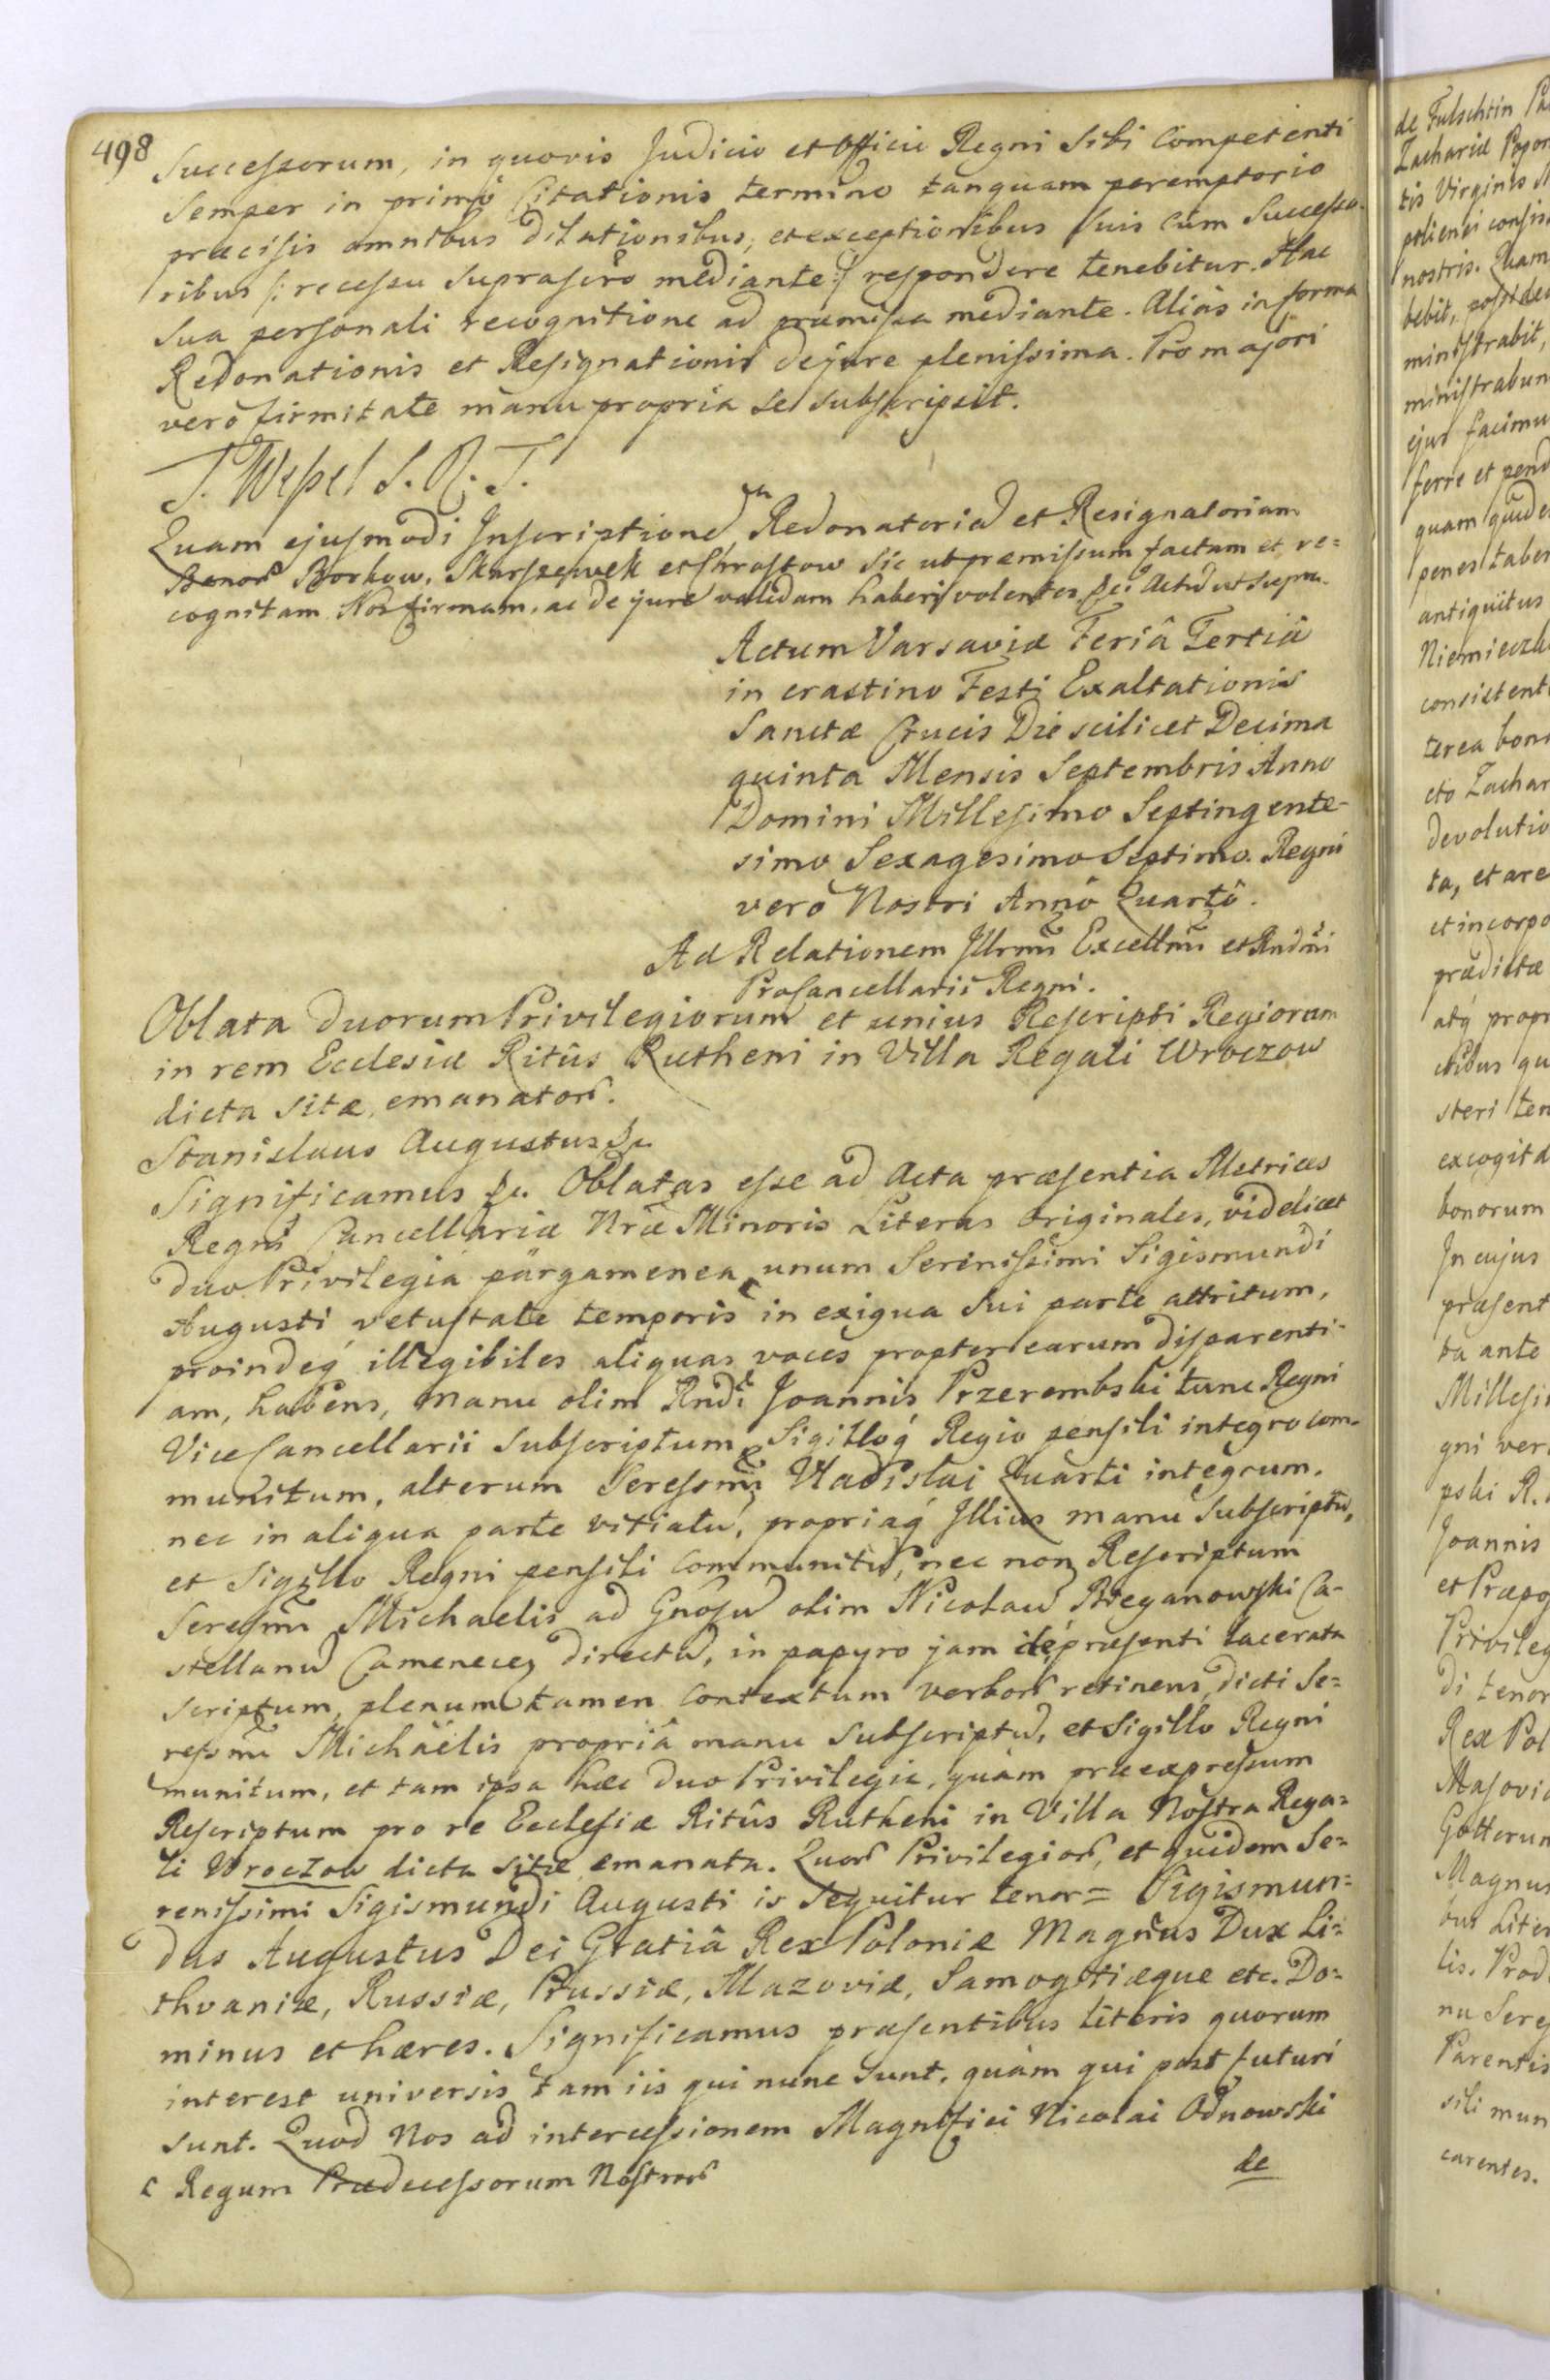 498
Successorum, in quovis Judicio et Officio Regni Sibi Competenti
Semper in primô Citationis termino tanquam peremptorio
præcisis omnibus dilationibus, et exceptionibus Suis cum Successo-
ribus /: recessu suprascrō mediante :/ respondere tenebitur. Hac
Sua personali recognitione ad præmissa mediante. Alias in forma
Redonationis et Resignationis de jure plenissima. Pro majori
verô firmitate manu propria se subscripsit.
T. Wessel S. R. T.
Quam ejusmodi Inscriptionem Redonatoriā et Resignatoriam
Bonor̄ Borkow, Skurszewek et Chrostow sic ut præmissum factam et re=
cognitam Nos firmam, ac de jure validam haberi volentes &c. Actū ut supra.
Actum Varsaviæ Feriâ Tertiâ
in crastino Festi Exaltationis
Sanctæ Crucis Die scilicet Decima
quinta Mensis Septembris Anno
Domini Millesimo Septingente-
simo Sexagesimo Septimo. Regni
verò Nostri Annô Quartô.
Ad Relationem Illrm̄i Excellm̄i et Rndm̄i
ProCancellarii Regni.
Oblata duorum Privilegiorum et unius Rescripti Regiorum
in rem Ecclesiæ Ritûs Rutheni in Villa Regali Wroczow
dicta sitæ, emanator̄.
Stanislaus Augustus &c.
Significamus &c. Oblatas esse ad Acta præsentia Metrices
Regni Cancellariæ Nrǣ Minoris Literas originales, videlicet
duo Privilegia pargamenea, unum Serenissimi Sigismundi
Augusti c vetustate temporis in exigua sui parte attritum,
proindeq́ illegibiles aliquas voces propter earum disparenti-
am, habens, manu olim Rndi Joannis Przerembski tunc Regni
ViceCancellarii subscriptum, Sigilloq́ Regio pensili integro com-
munitum, alterum Seressmī Vladislai Quarti integrum,
nec in aliqua parte vitiatū, propriaq́ Illius manu subscriptū,
et Sigillo Regni pensili communitū, nec non Rescriptum
Seressmī Michaelis ad Gnosū olim Nicolaū Bieganowski Ca-
stellanū Camenecen directū, in papyro jam de præsenti lacerata
scriptum, plenum tamen contextum verbor̄ retinens, dicti Se=
ressmī Michaëlis propriâ manu subscriptū, et Sigillo Regni
munitum, et tam ipsa hæc duo Privilegia, quàm præexpressum
Rescriptum pro re Ecclesiæ Ritûs Rutheni in Villa Nostra Rega=
li Wroczow dicta sitæ emanata. Quor̄ Privilegior̄, et quidem Se=
renissimi Sigismundi Augusti is sequitur tenor = Sigismun=
dus Augustus Dei Gratiâ Rex Poloniæ Magnus Dux Li=
thvaniæ, Russiæ, Prussiæ, Mazoviæ, Samogitiæque etc. Do=
minus et hæres. Significamus præsentibus literis quorum
interest universis tam iis qui nunc sunt, quàm qui post futuri
sunt. Quod Nos ad intercessionem Magnifici Nicolai Odnowski
c Regum Prædecessorum Nostror̄
de
de Fulschtin
Zachariæ
tis Virginis
nostris. Quam
bebit,
ministrabit,
ministrabun
ejus facimu
ferre et pend
quam quide
penes taber
antiquitus
consistent
terea bon
cto Zachar
devolutio
ta, et are
et incorpo
prædictæ
atq́ propr
steri ten
excogita
bonorum
In cujus
præsent
ta ante
Millesi
gni ver
pski R.
Joannis
et Præpo
Privileg
di tenor
Rex Pol
Masovia
Gottorun
Magnus
lis. Prod
nu Seres
Parentis
sili mun
carentes.